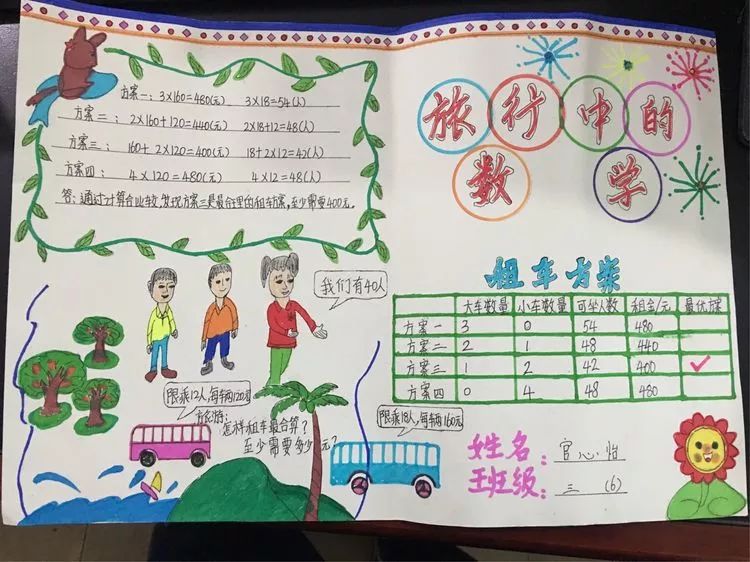 方案一：3×160=480(元) 3×18=54(人)
方案二：2×160+120=440(元) 2×18+12=48(人)
方案三：160+2×120=400(元) 18+2×12=42(人)
方案四：4×120=480(元) 4×12=48(人)
答：通过计算台比较,发现方案三是最合理的租车方案,至少需要400元。
旅行中的
数学
我们有40人
限乘12人,每辆120元
旅游：
怎样租车最合算？
至少需要多少元？
限乘18人,每辆160元
租车方案
大车数量 小车数量 可坐人数 租金/元 最优方案
方案一 3 0 54 480
方案二 2 1 48 440
方案三 1 2 42 400 ✓
方案四 0 4 48 480
姓名：官心怡
班级：三(6)